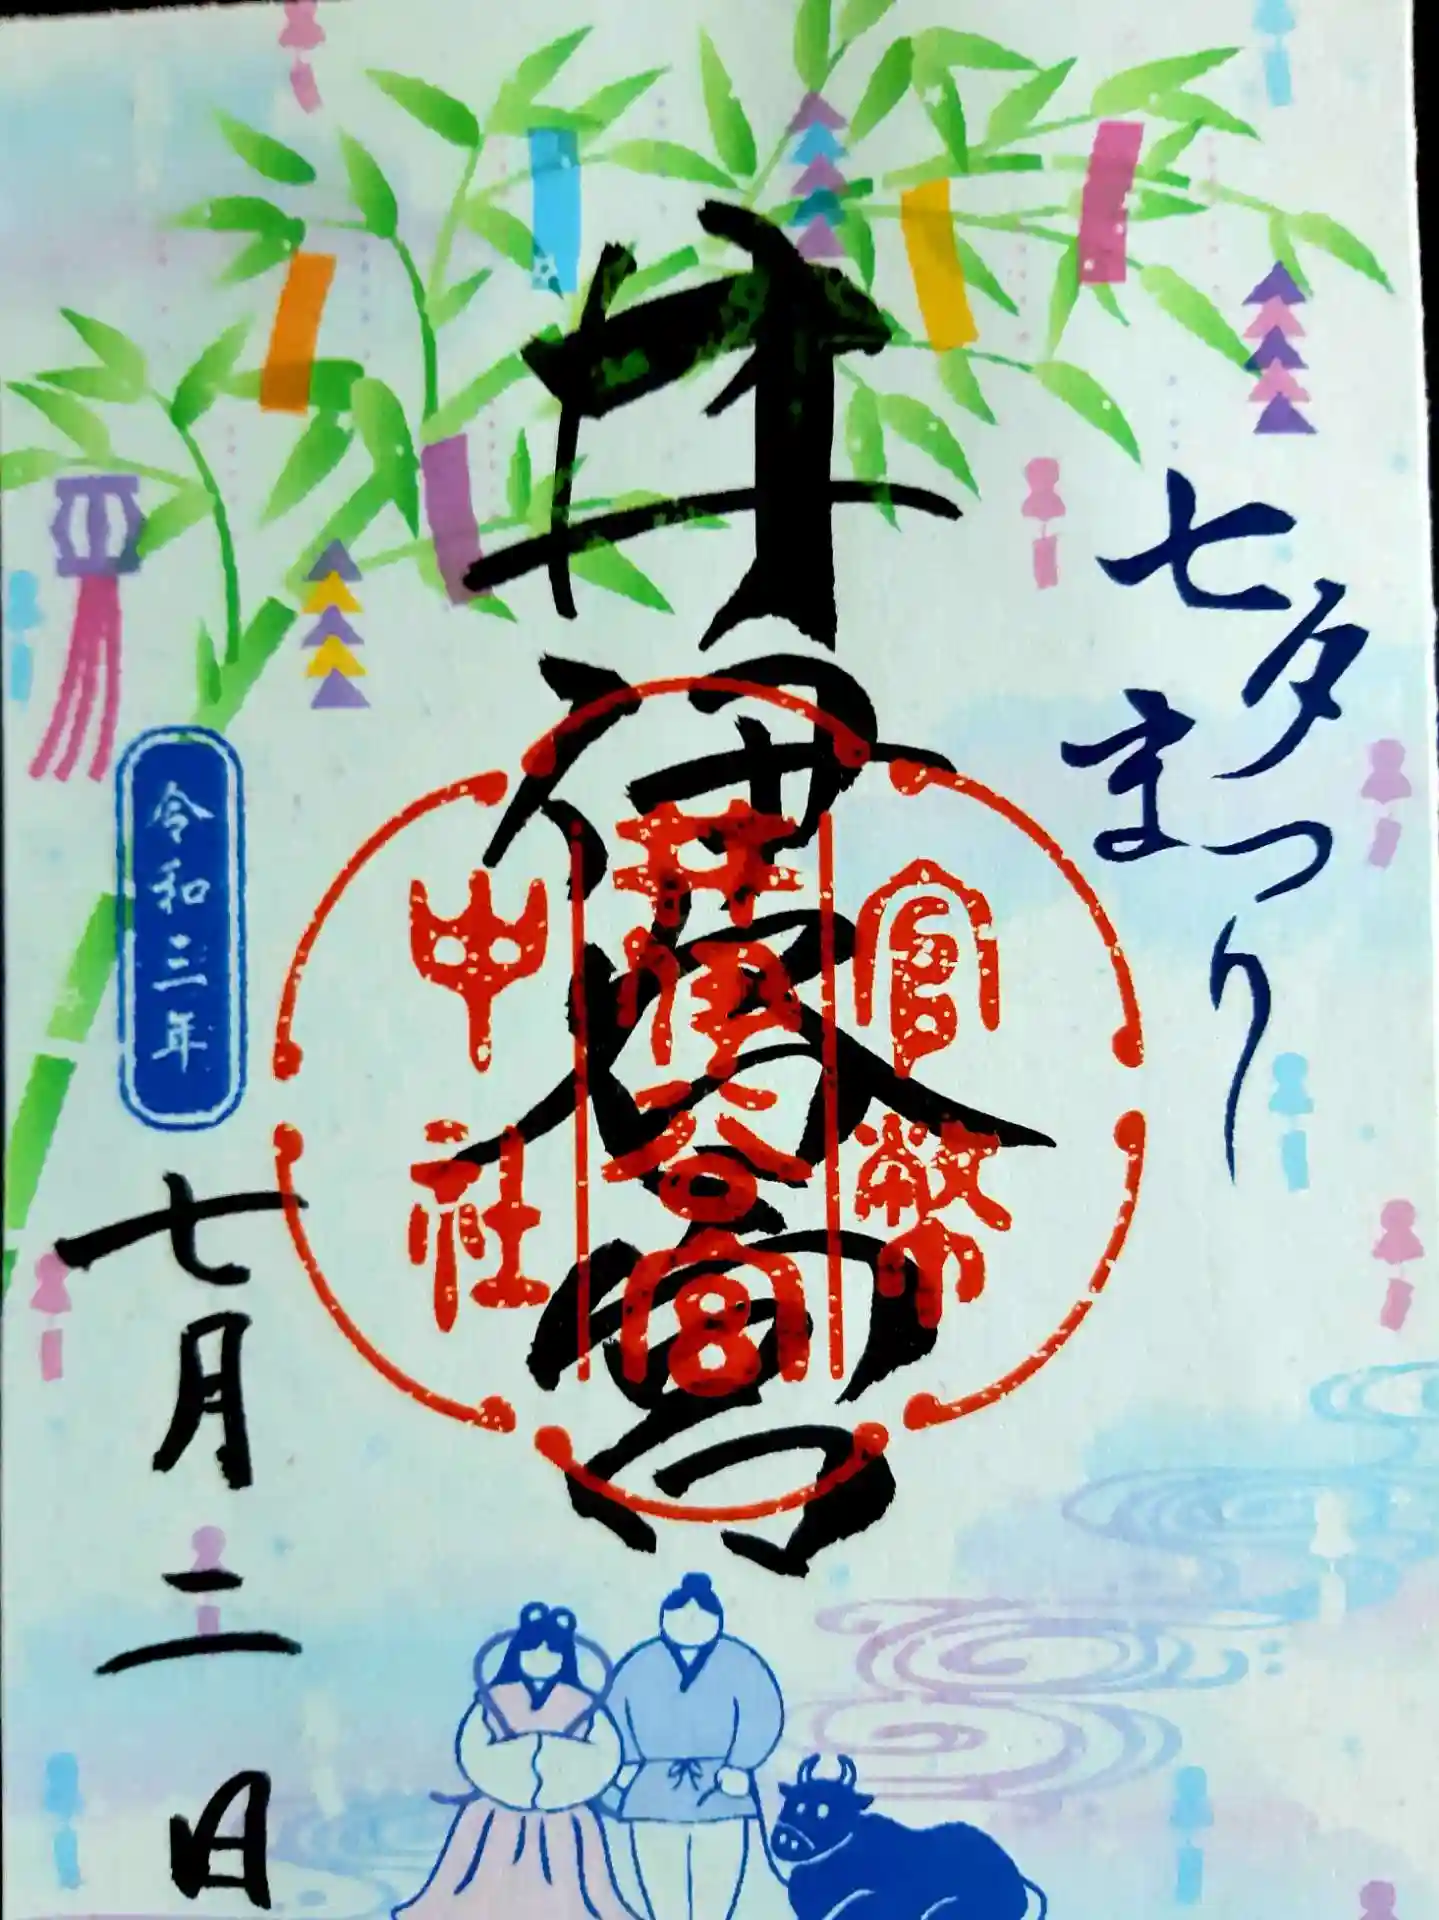 七夕まつり
井伊谷宮
官幣
井伊谷宮
中社
令和三年
七月二日